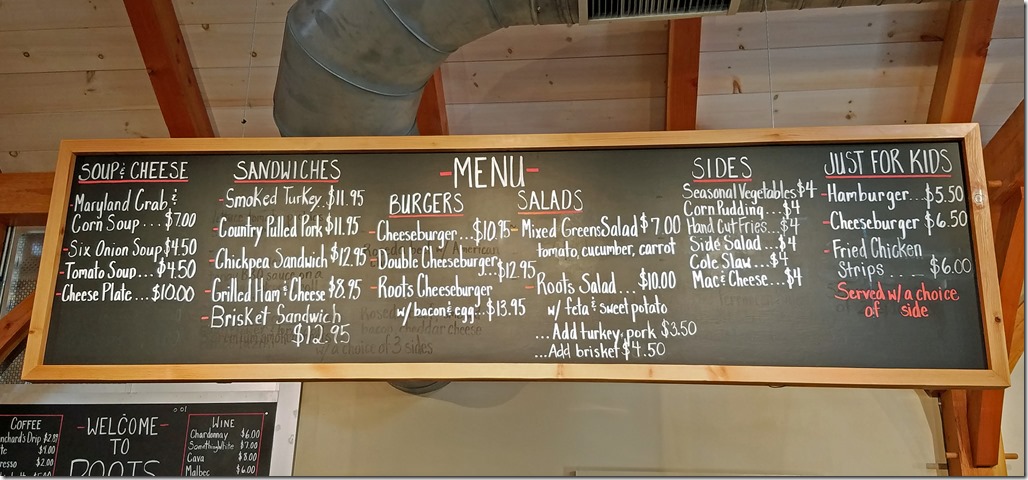 SOUP & CHEESE
- Maryland Crab &
Corn Soup ... $7.00
- Six Onion Soup $4.50
- Tomato Soup... $4.50
- Cheese Plate ... $10.00
SANDWICHES
- Smoked Turkey.. $11.95
- Country Pulled Pork $11.95
- Chickpea Sandwich $12.95
- Grilled Ham & Cheese $8.95
- Brisket Sandwich
$12.95
w/ a choice of 3 sides
- MENU -
BURGERS
- Cheeseburger... $10.95
- Double Cheeseburger
$12.95
- Roots Cheeseburger
w/ bacon & egg... $13.95
bacon, cheddar cheese
SALADS
- Mixed Greens Salad $7.00
tomato, cucumber, carrot
- Roots Salad .... $10.00
w/ feta & sweet potato
...Add turkey, pork $3.50
...Add brisket $4.50
SIDES
Seasonal Vegetables $4
Corn Pudding ... $4
Hand Cut Fries... $4
Side Salad ... $4
Cole Slaw ... $4
Mac & Cheese... $4
JUST FOR KIDS
- Hamburger... $5.50
- Cheeseburger $6.50
- Fried Chicken
Strips .... $6.00
Served w/ a choice
of side
COFFEE
Drip
$4.00
$2.00
- WELCOME -
TO
ROOTS
WINE
Chardonnay $6.00
$7.00
Cava $8.00
Malbec $6.00